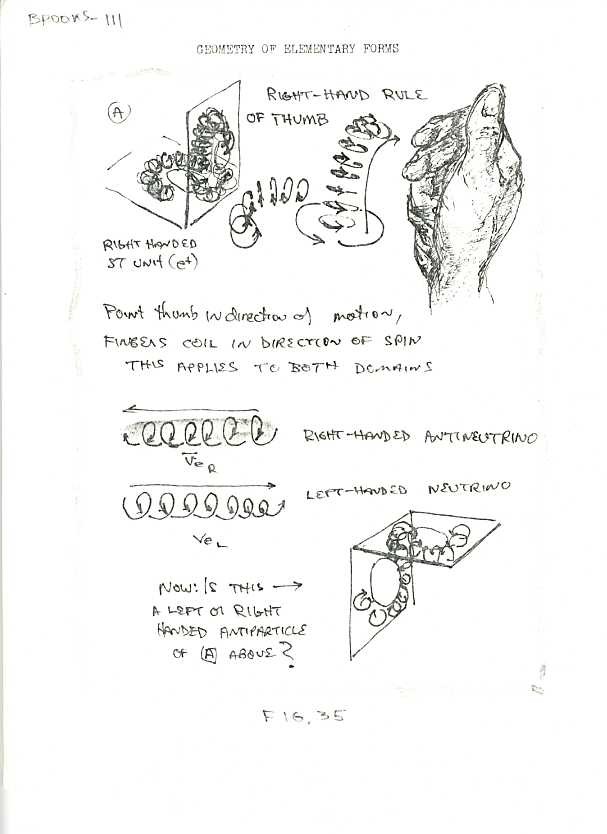 BPOONS-111
GEOMETRY OF ELEMENTARY FORMS
A
RIGHT-HAND RULE
OF THUMB
RIGHT HANDED
ST UNIT (e+)
Point thumb in direction of motion,
FINGERS COIL IN DIRECTION OF SPIN
THIS APPLIES TO BOTH DOMAINS
RIGHT-HANDED ANTINEUTRINO
ν̄eR
LEFT-HANDED NEUTRINO
νeL
NOW: IS THIS →
A LEFT or RIGHT
HANDED ANTIPARTICLE
OF A ABOVE?
FIG. 35